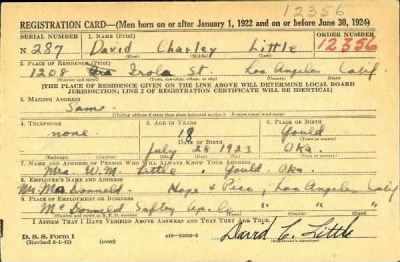 12356
REGISTRATION CARD—(Men born on or after January 1, 1922 and on or before June 30, 1924)
SERIAL NUMBER 1. NAME (Print) ORDER NUMBER
N 287 David Charley Little 12356
(First) (Middle) (Last)
2. PLACE OF RESIDENCE (Print)
1208 Irolo St. Los Angeles Calif
(Number and street) (Town, township, village, or city) (County) (State)
[THE PLACE OF RESIDENCE GIVEN ON THE LINE ABOVE WILL DETERMINE LOCAL BOARD
JURISDICTION; LINE 2 OF REGISTRATION CERTIFICATE WILL BE IDENTICAL]
3. MAILING ADDRESS
Same.
[Mailing address if other than place indicated on line 2. If same insert word same]
4. TELEPHONE 5. AGE IN YEARS 6. PLACE OF BIRTH
none. 18 Gould
DATE OF BIRTH
July 26 1923 Oka.
(Exchange) (Number) (Mo.) (Day) (Yr.) (State or country)
7. NAME AND ADDRESS OF PERSON WHO WILL ALWAYS KNOW YOUR ADDRESS
Mrs. W. M. Little Gould. Oka.
8. EMPLOYER'S NAME AND ADDRESS
Mr. MacDonneld Hope & Pico, Los Angeles Calif
9. PLACE OF EMPLOYMENT OR BUSINESS
McDonneld " " "
(Number and street or R. F. D. number) (Town) (County) (State)
I AFFIRM THAT I HAVE VERIFIED ABOVE ANSWERS AND THAT THEY ARE TRUE.
D. S. S. Form 1
(Revised 6-1-42) (over) David C. Little
(Registrant's signature)